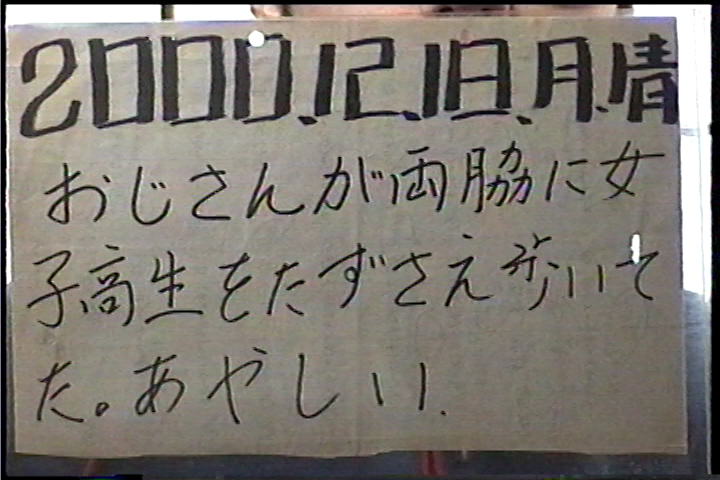 2000.12.18.月.晴
おじさんが両脇に女
子高生をたずさえ歩いて
た。あやしい.